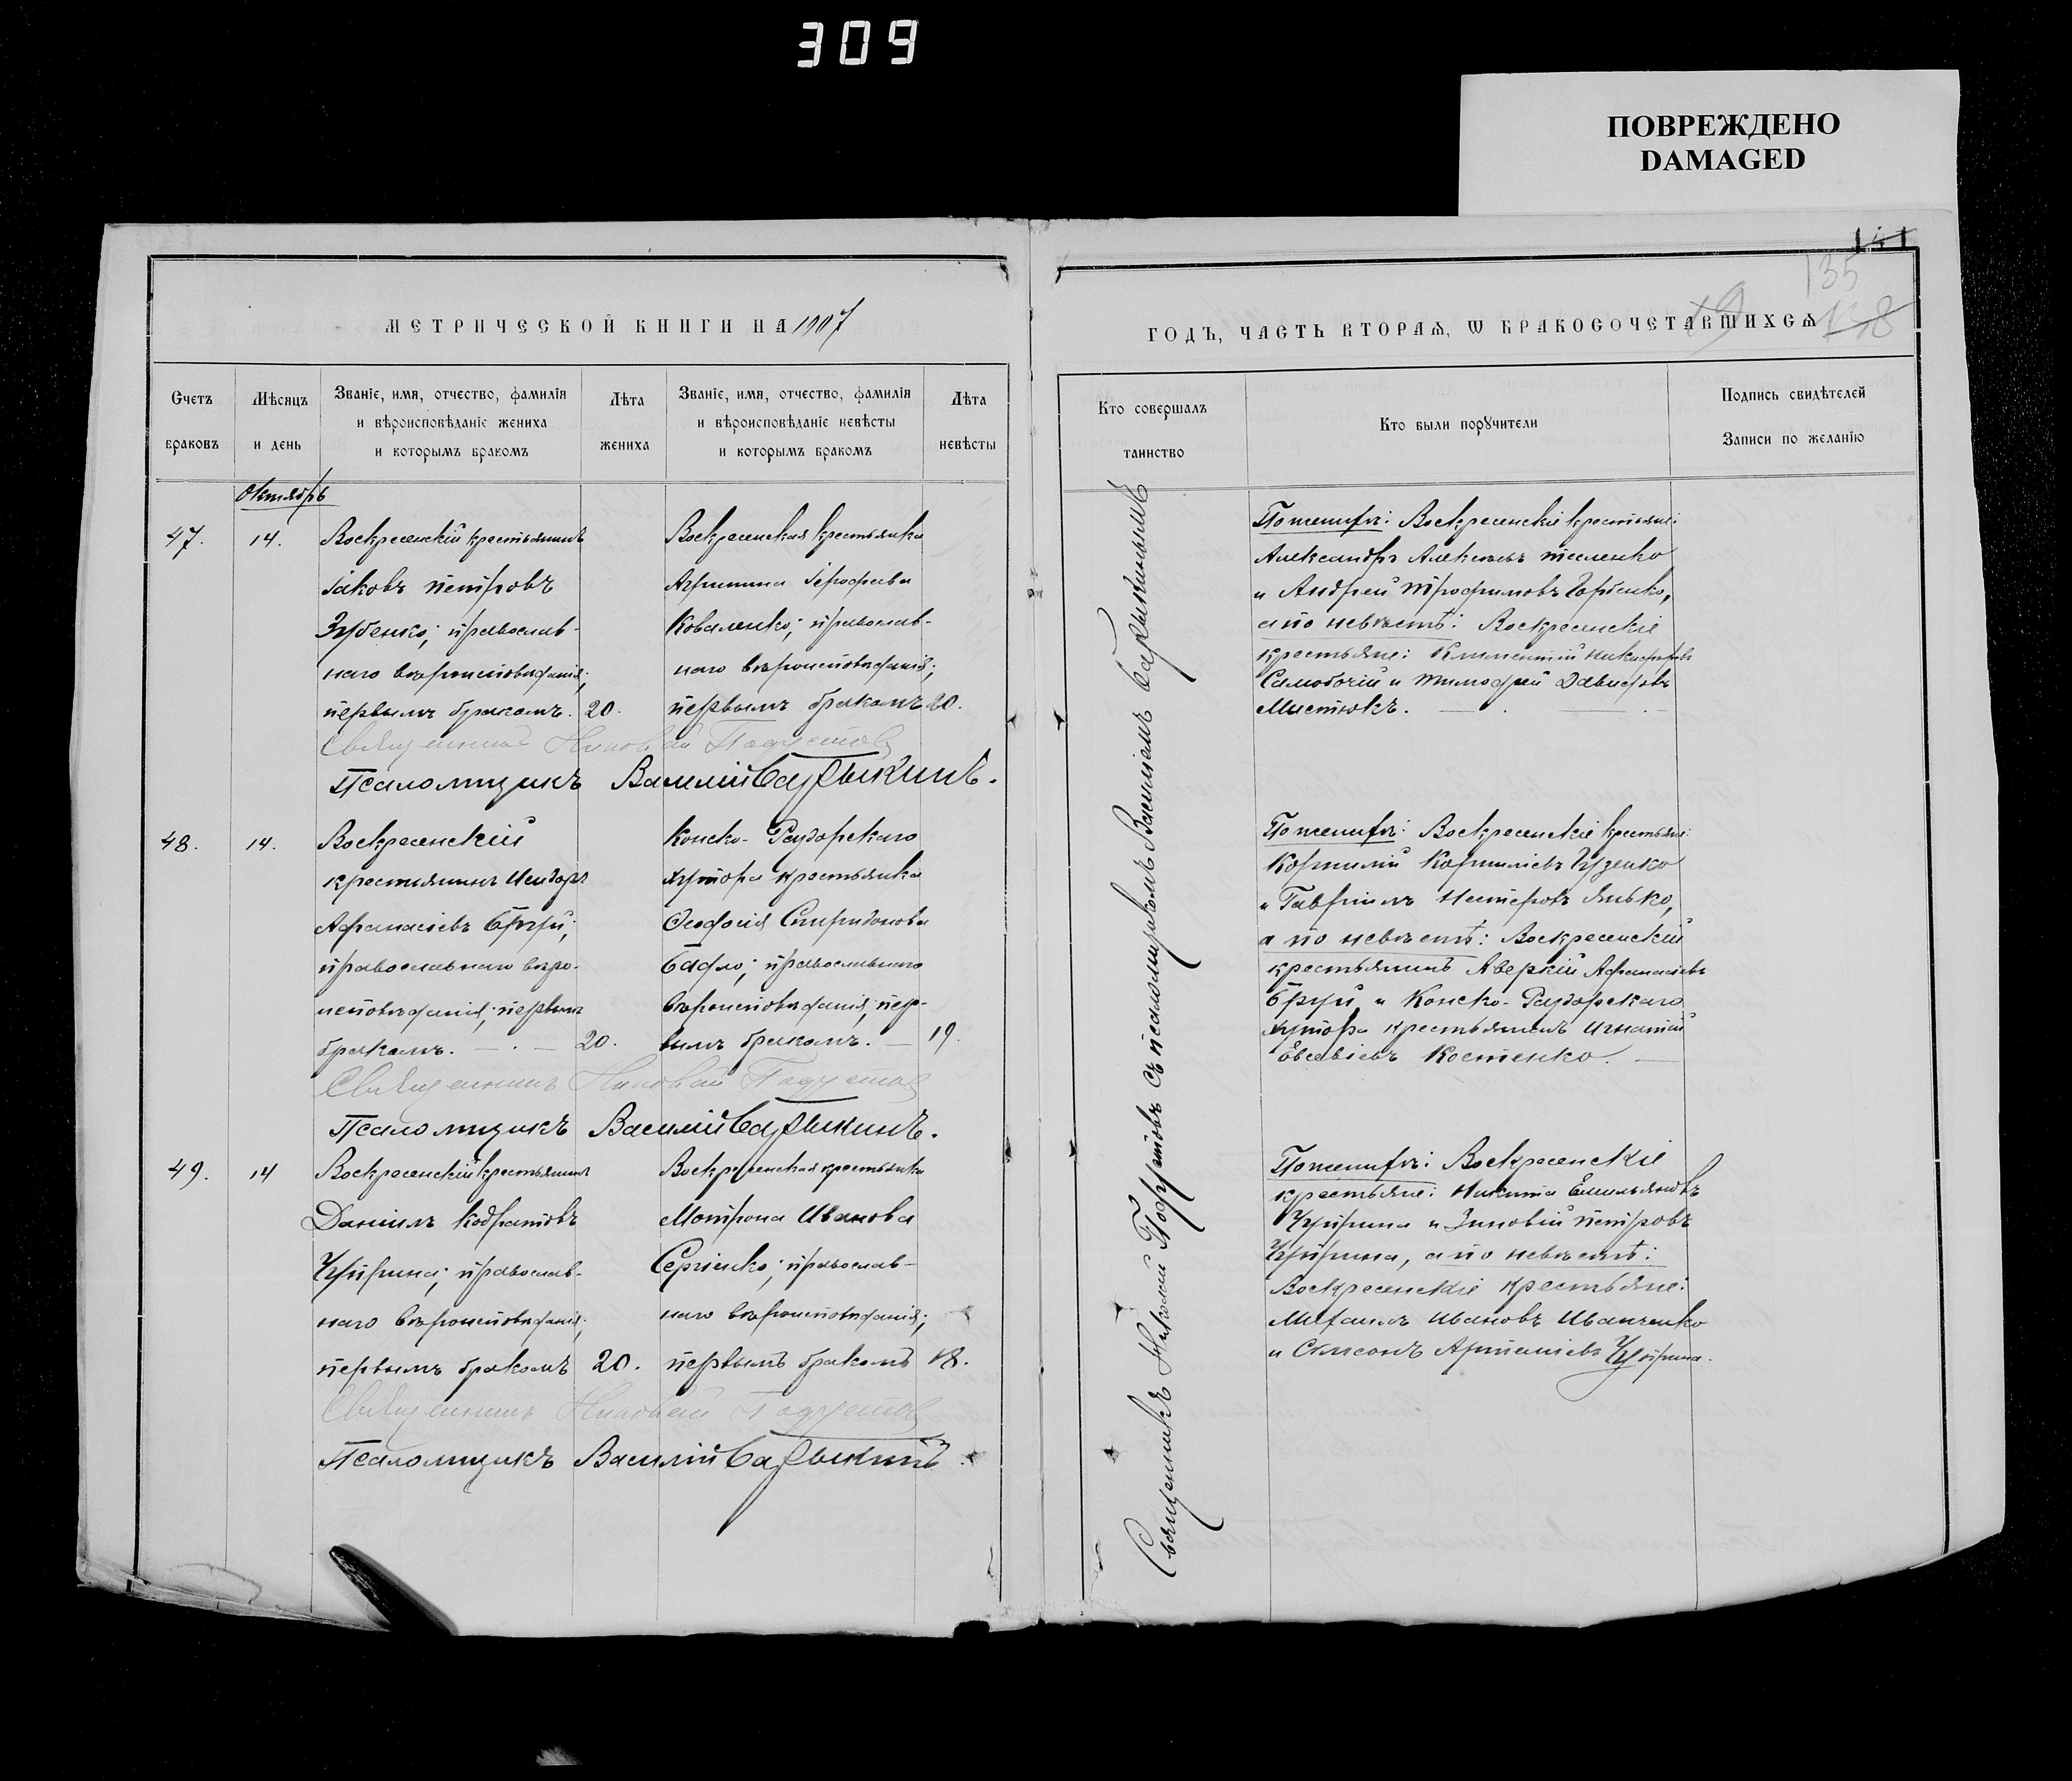 309
ПОВРЕЖДЕНО
DAMAGED
МЕТРИЧЕСКОЙ КНИГИ НА 1907
Счетъ браковъ
Мѣсяцъ и день
Званіе, имя, отчество, фамилія
и вѣроисповѣданіе жениха
и которымъ бракомъ
Лѣта жениха
Званіе, имя, отчество, фамилія
и вѣроисповѣданіе невѣсты
и которымъ бракомъ
Лѣта невѣсты
Октябрь
47.
14.
Воскресенскій крестьянинъ
Іаковъ Петровъ
Зубенко; православ-
наго вѣроисповѣданія;
первымъ бракомъ.
20.
Воскресенская крестьянка
Агрипина Іерофеева
Коваленко; православ-
наго вѣроисповѣданія;
первымъ бракомъ
20.
Священникъ Николай
Псаломщикъ Василій
48.
14.
Воскресенскій
крестьянинъ Исидоръ
Афанасіевъ
православнаго вѣро-
исповѣданія; первымъ
бракомъ.
20.
Конско-Раздорскаго
хутора крестьянка
Феодосія Спиридонова
православнаго
вѣроисповѣданія; пер-
вымъ бракомъ.
19.
Священникъ Николай
Псаломщикъ Василій
49.
14
Воскресенскій крестьянинъ
Даніилъ Кодратовъ
Чуприна; православ-
наго вѣроисповѣданія;
первымъ бракомъ
20.
Воскресенская крестьянка
Мотрона Иванова
Сергіенко; православ-
наго вѣроисповѣданія;
первымъ бракомъ
18.
Священникъ Николай
Псаломщикъ Василій
141
135
ГОДЪ, ЧАСТЬ ВТОРАѦ, Ѡ БРАКОСОЧЕТАВШИХСѦ
Кто совершалъ
таинство
Кто были порꙋчители
Подпись свидѣтелей
Записи по желанію
Священникъ Николай съ псаломщикомъ Василіемъ
По женихѣ: Воскресенскіе крестьяне:
Александръ Алексѣевъ
и Андрей Трофимовъ Горбенко,
а по невѣстѣ: Воскресенскіе
крестьяне: Климентій Никифоровъ
и Тимофей Давидовъ
По женихѣ: Воскресенскіе крестьяне:
Корнилій Корниліевъ Гузенко
и Гавріилъ Несторовъ
а по невѣстѣ: Воскресенскій
крестьянинъ Аверкій Афанасіевъ
и Конско-Раздорскаго
хутора крестьянинъ Игнатій
Евсевіевъ Костенко.
По женихѣ: Воскресенскіе
крестьяне: Никита Емельяновъ
Чуприна и Зиновій Петровъ
Чуприна, а по невѣстѣ:
Воскресенскіе крестьяне:
Михаилъ Ивановъ Иванченко
и Симеонъ Чуприна.